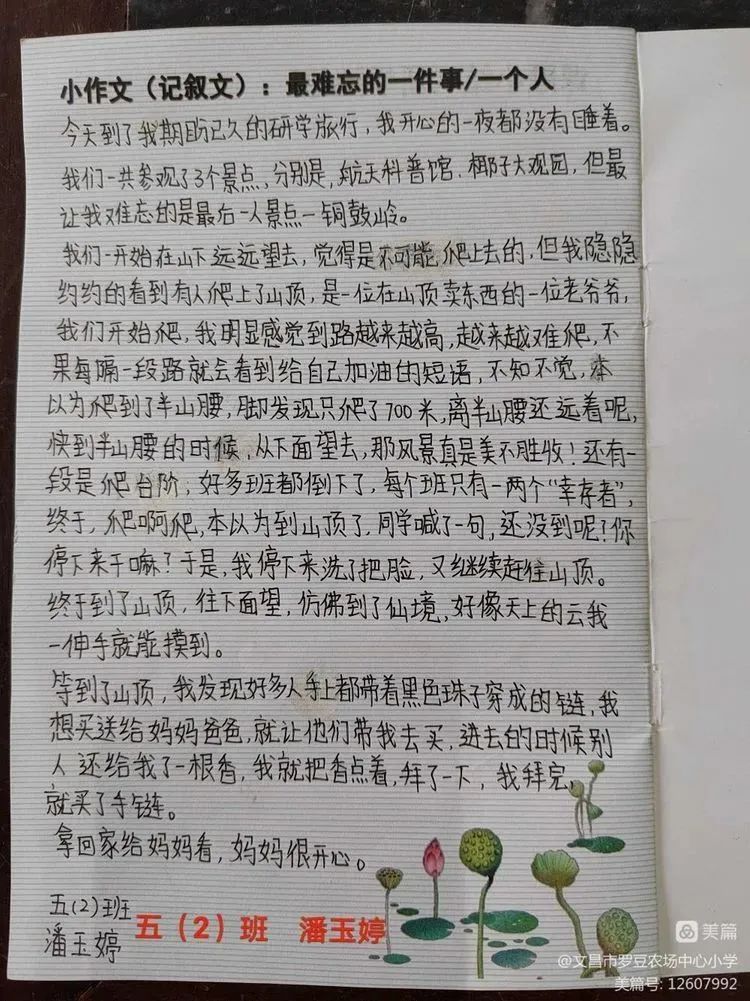 小作文（记叙文）：最难忘的一件事/一个人
今天到了我期盼已久的研学旅行，我开心的一夜都没有睡着。
我们一共参观了3个景点，分别是，航天科普馆．椰子大观园，但最
让我难忘的是最后一人景点—铜鼓岭。
我们一开始在山下远远望去，觉得是不可能爬上去的，但我隐隐
约约的看到有人爬上了山顶，是一位在山顶卖东西的一位老爷爷，
我们开始爬，我明显感觉到路越来越高，越来越难爬，不
果每隔一段路就会看到给自己加油的短语，不知不觉，本
以为爬到了半山腰，脚发现只爬了700米，离半山腰还远着呢，
快到半山腰的时候，从下面望去，那风景真是美不胜收！还有一
段是爬台阶，好多班都倒下了，每个班只有一两个“幸存者”，
终于，爬啊爬，本以为到山顶了，同学喊了一句，还没到呢？你
停下来干嘛？于是，我停下来洗了把脸，又继续赶往山顶。
终于到了山顶，往下面望，仿佛到了仙境，好像天上的云我
一伸手就能摸到。
等到了山顶，我发现好多人手上都带着黑色珠子穿成的链，我
想买送给妈妈爸爸，就让他们带我去买，进去的时候别
人还给我了一根香，我就把香点着，拜了一下，我拜完，
就买了手链。
拿回家给妈妈看，妈妈很开心。
五(2)班
潘玉婷
五（2）班 潘玉婷
美篇
@文昌市罗豆农场中心小学
美篇号: 12607992